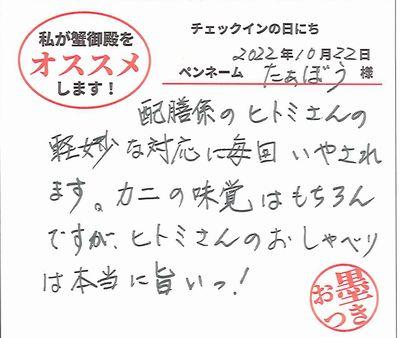 私が蟹御殿を
オススメ
します!
チェックインの日にち
2022年10月22日
ペンネーム たぁぼう 様
配膳係のヒトミさんの
軽妙な対応に毎回いやされ
ます。カニの味覚はもちろん
ですが、ヒトミさんのおしゃべり
は本当に旨いっ!
お墨
つき